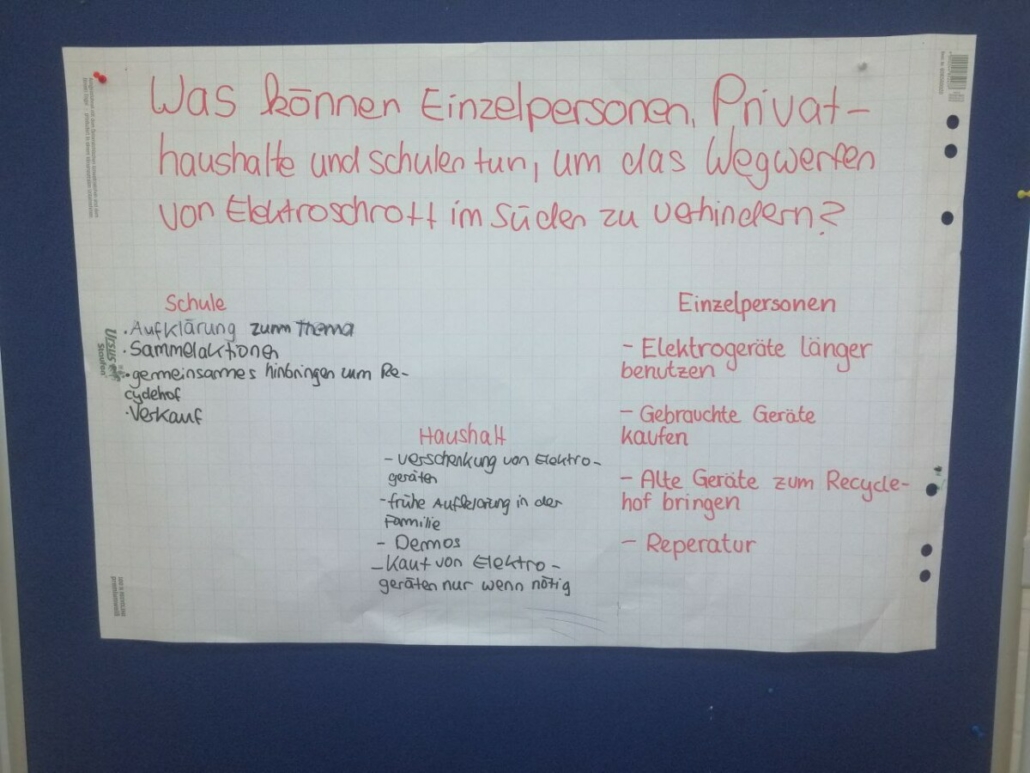 Was können Einzelpersonen, Privat-
haushalte und schulen tun, um das Wegwerfen
von Elektroschrott im Süden zu verhindern?
Schule
·Aufklärung zum Thema
·Sammelaktionen
·gemeinsames hinbringen zum Re-
cyclehof
·Verkauf
Haushalt
- verschenkung von Elektro-
geräten
- frühe Aufklärung in der
Familie
- Demos
- Kauf von Elektro-
geräten nur wenn nötig
Einzelpersonen
- Elektrogeräte länger
benutzen
- Gebrauchte Geräte
kaufen
- Alte Geräte zum Recycle-
hof bringen
- Reperatur
Ursus
Staufen